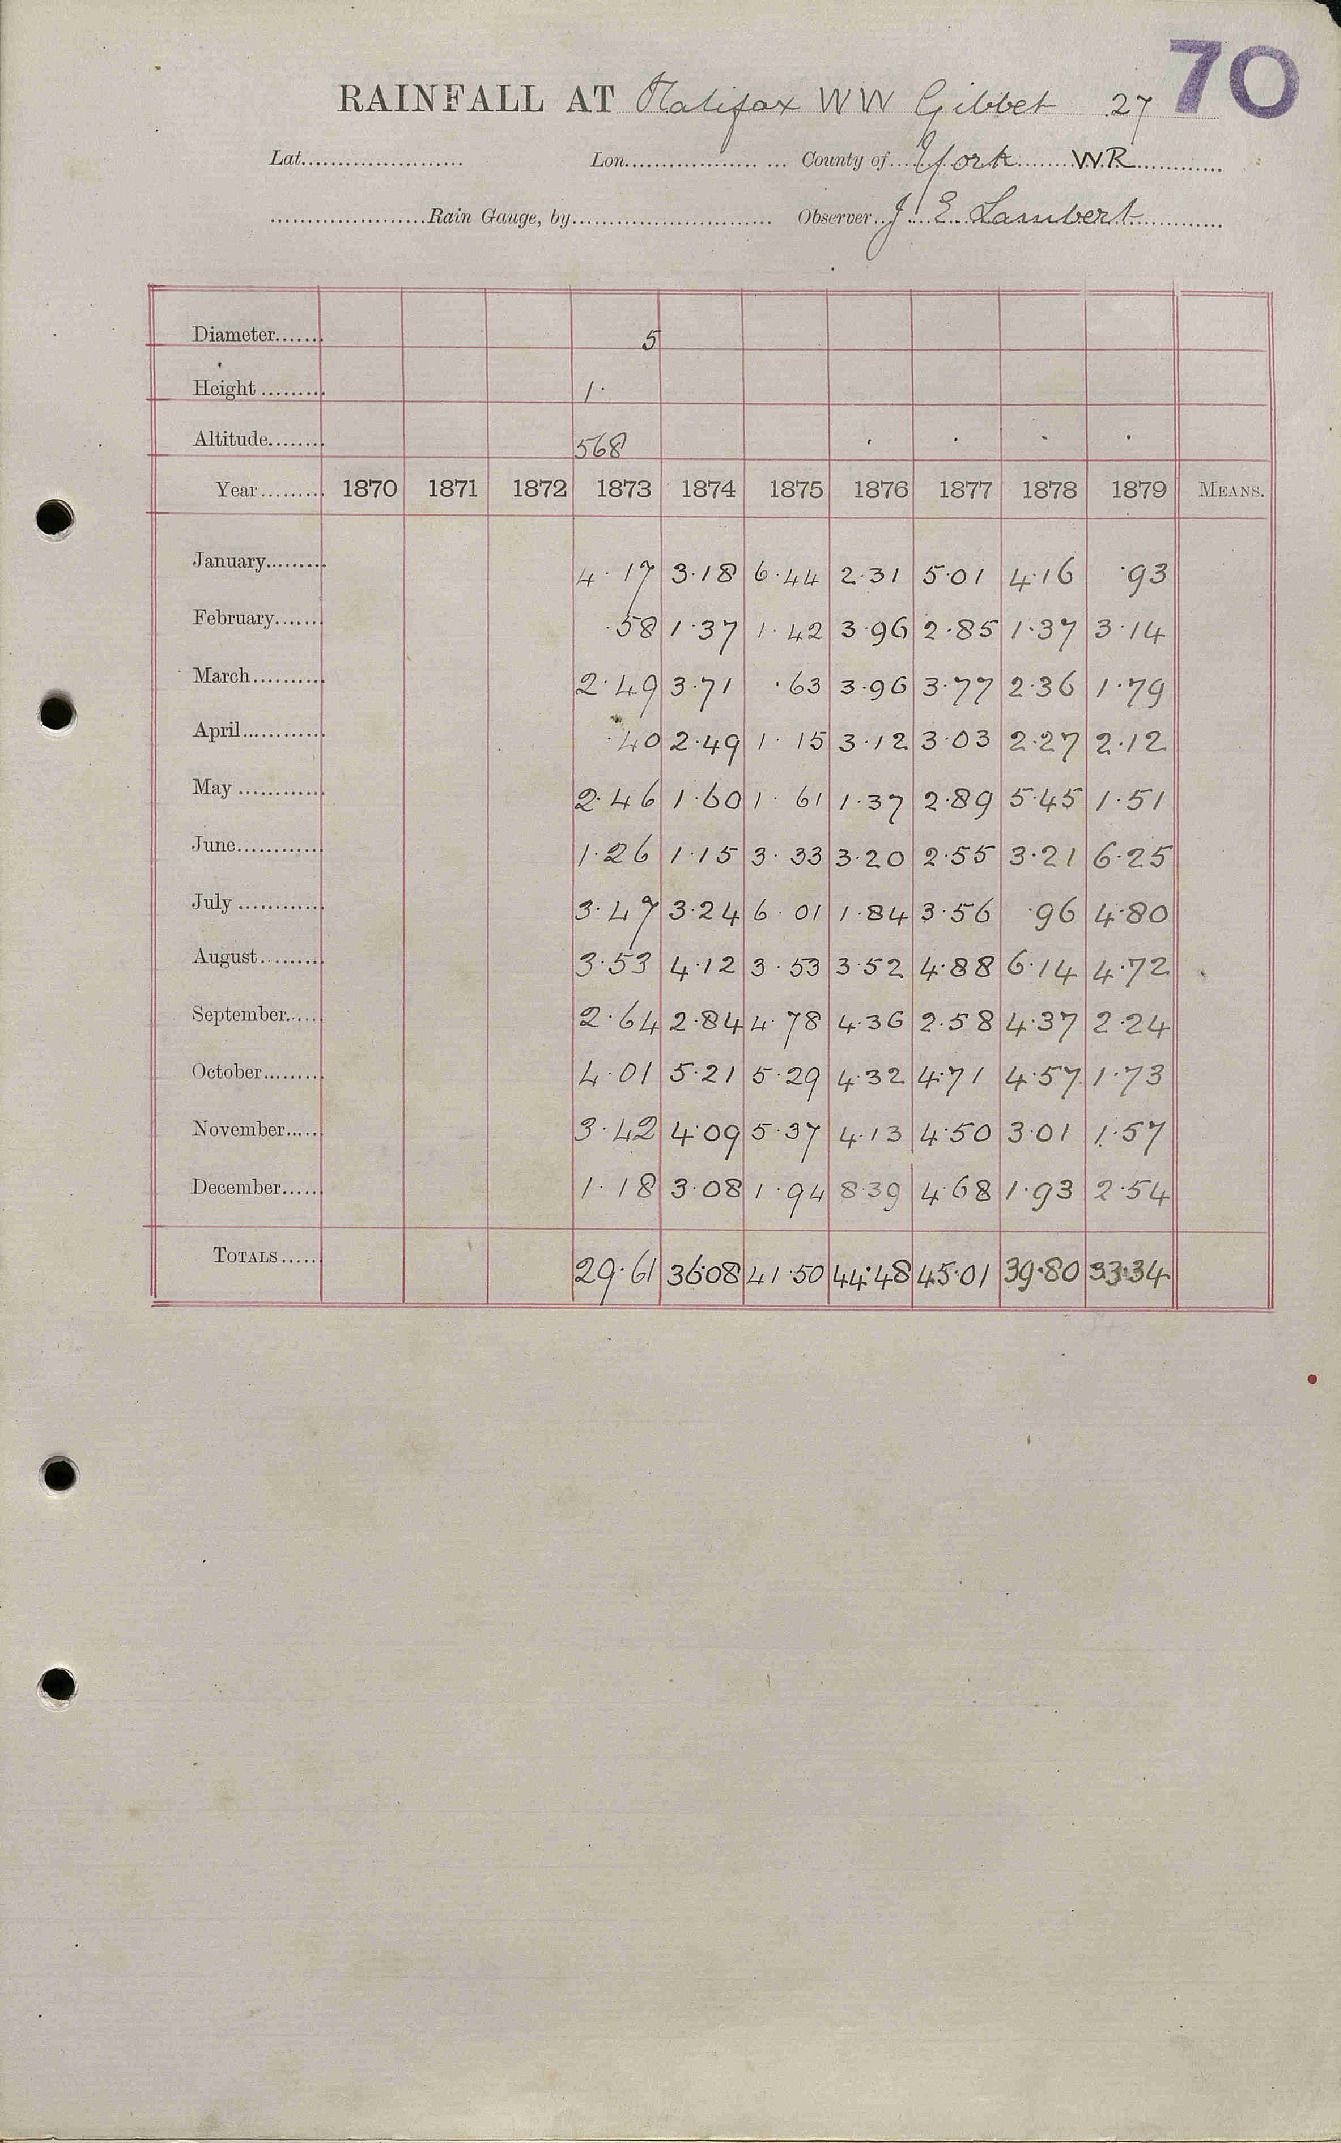 70
RAINFALL AT Halifax WW Gibbet 27
Lat...................... Lon.................. ... County of...York.......WR............
.....................Rain Gauge, by........................... Observer...J. E. Lambert...........
Diameter....... 5
Height ......... 1·
Altitude........ 568
Year......... 1870 1871 1872 1873 1874 1875 1876 1877 1878 1879 MEANS.
January......... 4·17 3·18 6·44 2·31 5·01 4·16 ·93
February....... ·58 1·37 1·42 3·96 2·85 1·37 3·14
March.......... 2·49 3·71 ·63 3·96 3·77 2·36 1·79
April............ ·40 2·49 1·15 3·12 3·03 2·27 2·12
May ............ 2·46 1·60 1·61 1·37 2·89 5·45 1·51
June............ 1·26 1·15 3·33 3·20 2·55 3·21 6·25
July ............ 3·47 3·24 6·01 1·84 3·56 ·96 4·80
August......... 3·53 4·12 3·53 3·52 4·88 6·14 4·72
September...... 2·64 2·84 4·78 4·36 2·58 4·37 2·24
October......... 4·01 5·21 5·29 4·32 4·71 4·57 1·73
November...... 3·42 4·09 5·37 4·13 4·50 3·01 1·57
December...... 1·18 3·08 1·94 8·39 4·68 1·93 2·54
TOTALS...... 29·61 36·08 41·50 44·48 45·01 39·80 33·34